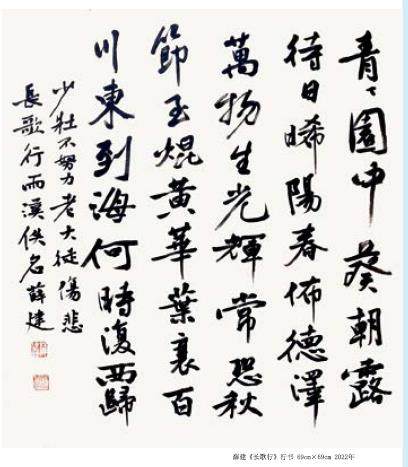 青々園中葵朝露
待日晞陽春佈德澤
萬物生光輝常恐秋
節至焜黃華葉衰百
川東到海何時復西歸
少壯不努力老大徒傷悲
長歌行两漢佚名薛建
薛建《长歌行》行书 69cm×69cm 2022年